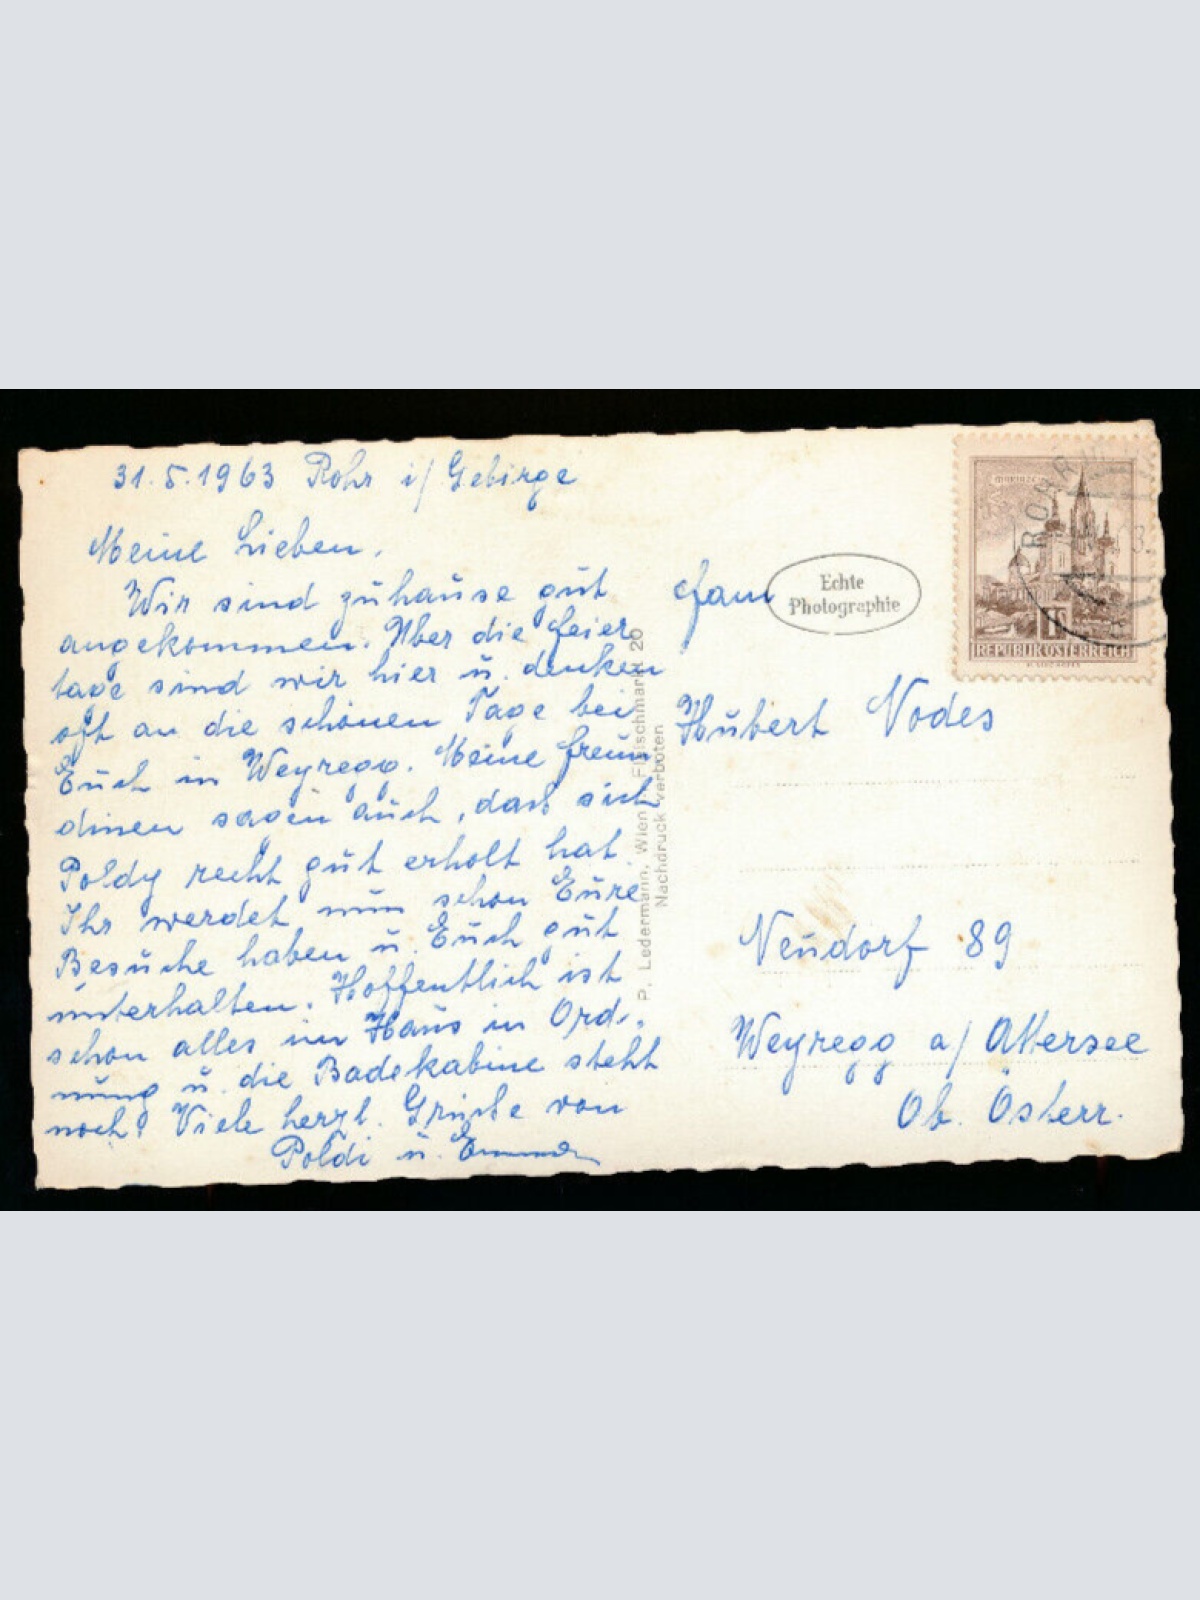 31.5.1963 Rohr i/ Gebirge
Meine Lieben,
Wir sind zuhause gut
angekommen. Über die Feier
tage sind wir hier u. denken
oft an die schönen Tage bei
Euch in Weyregg. Meine Freun
dinen sagen auch, daß sich
Poldy recht gut erholt hat.
Ihr werdet nun schon Eure
Besuche haben u. Euch gut
unterhalten. Hoffentlich ist
schon alles im Haus in Ord-
nung u. die Badekabine steht
noch! Viele herzl. Grüße von
Poldi u.
P. Ledermann, Wien, Fleischmarkt 20
Nachdruck verboten
Echte
Photographie
Fam
Hubert Nodes
Neudorf 89
Weyregg a/ Attersee
Ob. Österr.
MARIAZELL
1 S
REPUBLIK ÖSTERREICH
ROHR IM